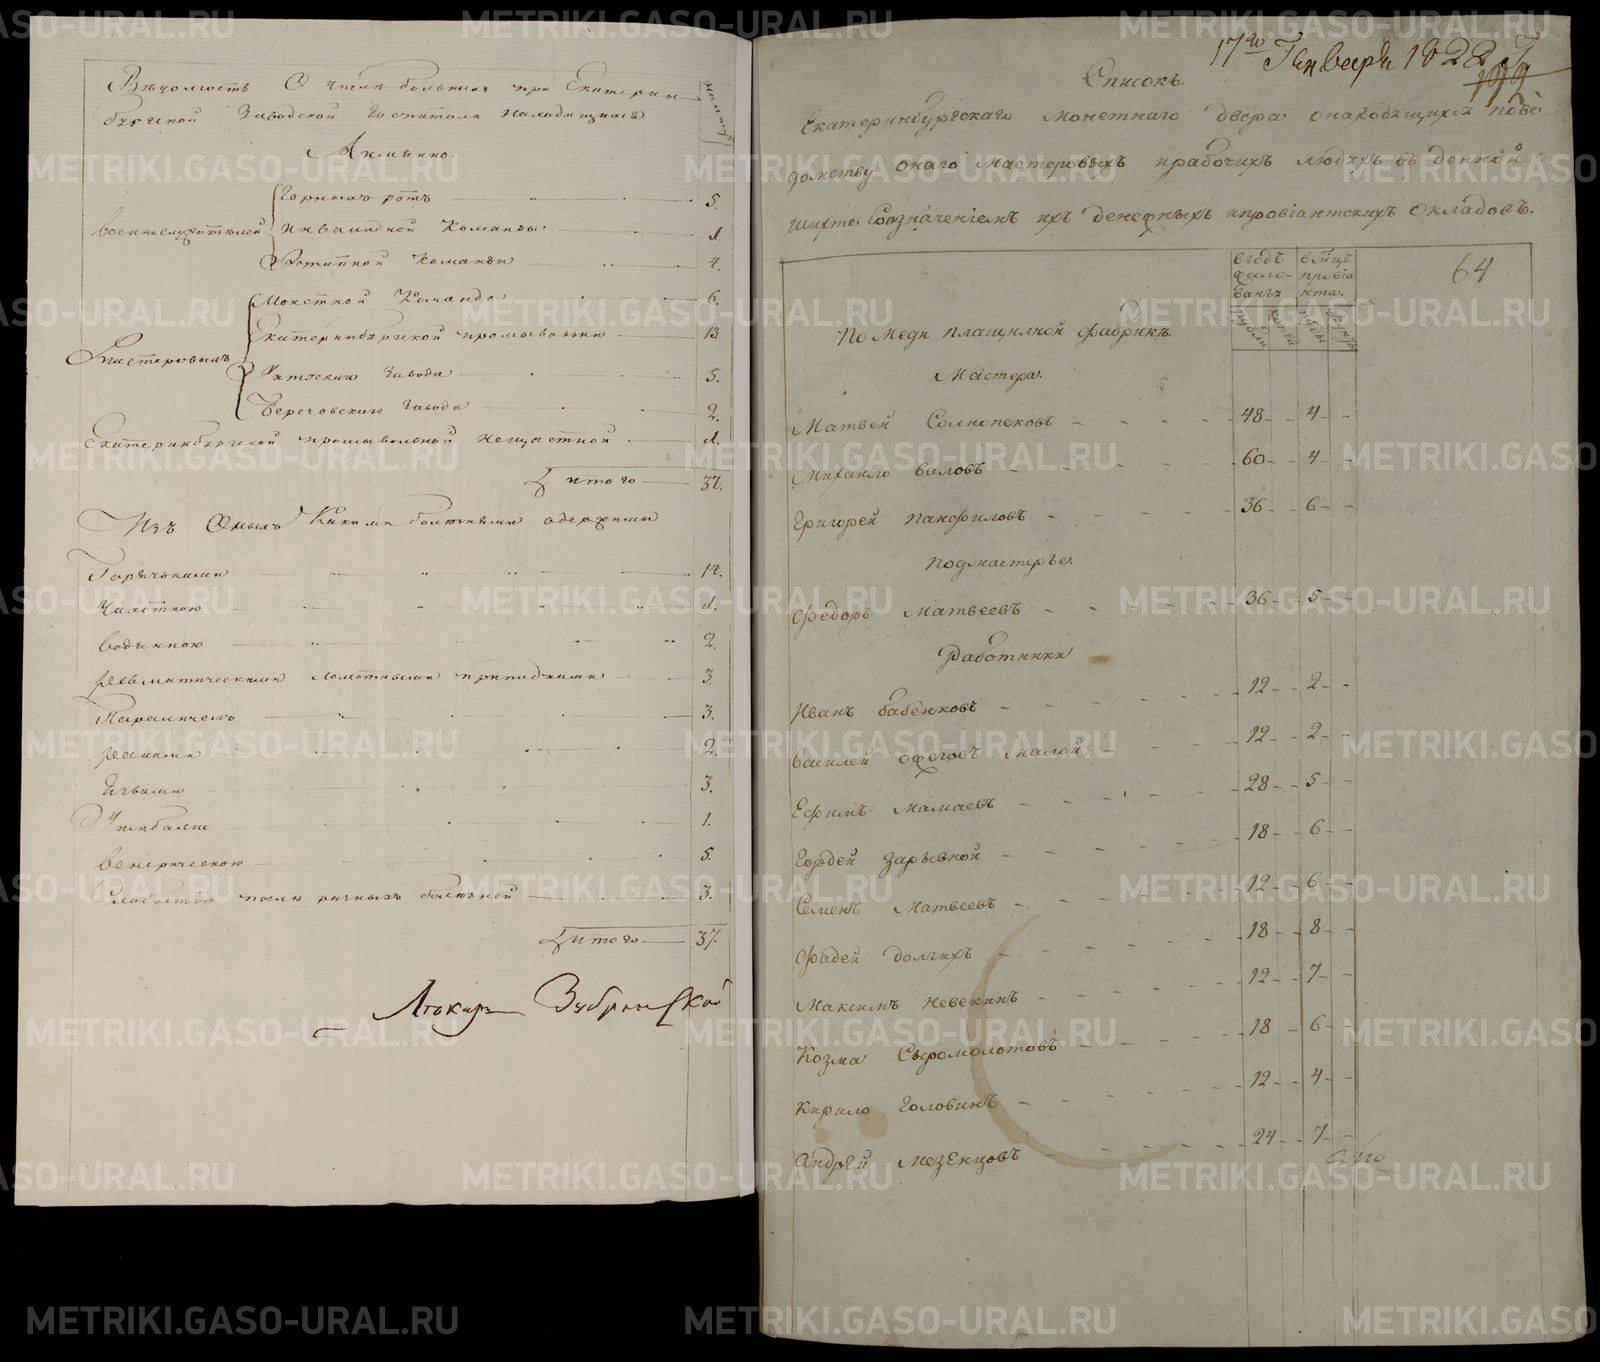 Вѣдомость О числѣ больныхъ при Екатерин
бургской Заводской Госпитали находящихся
Аименно.
военнослужителей
Горныхъ ротъ 5.
Инвалидной Команды 1.
Штатной Команды 4.
Мастеровыхъ
Монетной Команды 6.
Екатеринбургской промывальни 13
Уктускаго завода 5.
Березовскаго завода 2.
Екатеринбургской промывальной 1.
Итого 37.
Изъ Оныхъ Какими болезньми одержимы
Горячками 14.
Чахоткою 1.
Водяною 2.
ревматическими ломотными припадками 3.
Параличемъ 3.
ранами 2.
3.
1.
Венерическою 5.
Слабостію послѣ разныхъ болезней 3.
Итого 37.
Лѣкарь
17го Генваря 182
Списокъ.
Екатеринбургскаго Монетнаго двора онаходящихся повѣ
домству онаго мастеровыхъ ирабочихъ людяхъ въ денной
шихте Созначениемъ ихъ денежныхъ ипровіантскихъ Окладовъ.
в годъ жало-ванья
в мѣцъ провіянта.
рубли копей пуды фунты
64
По Меди плащилной фабрикѣ
Мастера.
Матвей Солнопековъ 48 4
Михаило валовъ 60 4
Григорей Панфиловъ 36 6
Подмастерье.
Федоръ Матвеевъ 36 5
Работники
Иванъ бабенковъ 12 2
Василей ожеговъ малой 12 2
Ефимъ Мамаевъ 28 5
Гордей Зарывной 18 6
Семенъ Матвеевъ 12 6
Фадей Долгихъ 18 8
Максимъ Невекинъ 12 7
Козма Сыромолотовъ 18 6
Кирило Головинъ 12 4
Андрей Мезенцовъ 24 7
METRIKI.GASO-URAL.RU